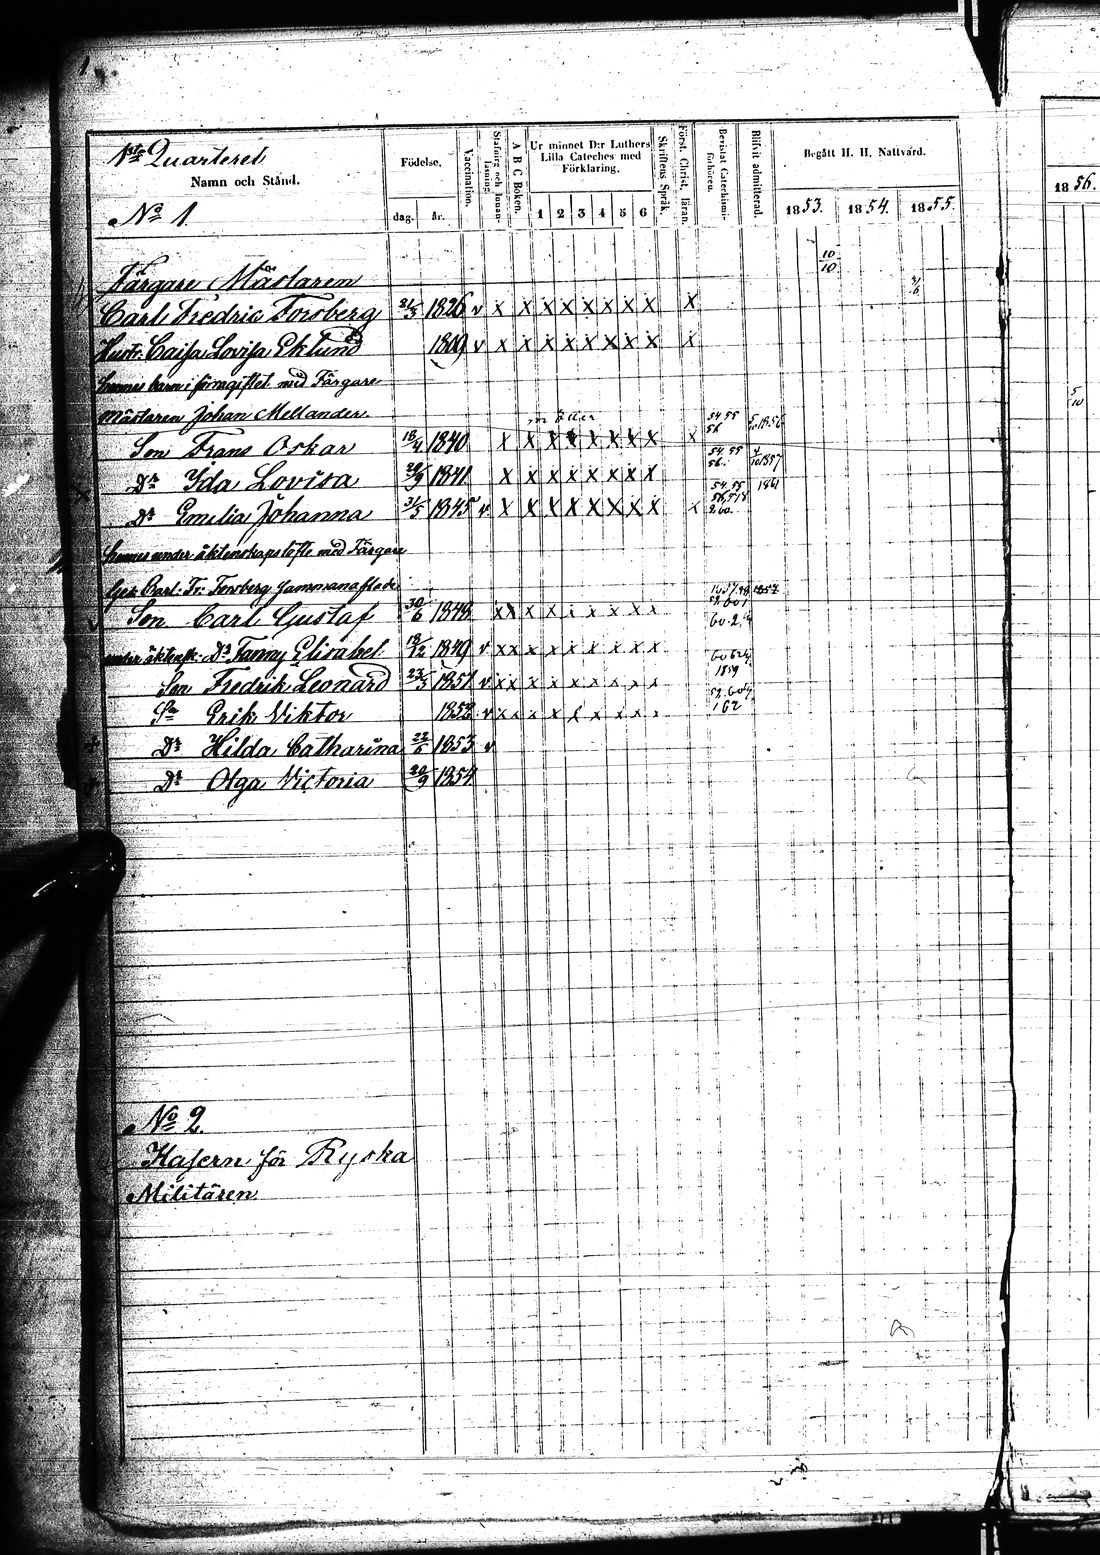 1
1sta Quarteret
Namn och Stånd.
No 1.
Födelse.
dag. år.
Vaccination.
Stafning och Innanläsning.
A B C Boken.
Ur minnet D:r Luthers Lilla Cateches med Förklaring.
1 2 3 4 5 6
Skriftens Språk.
Först. Christ. läran.
Bevistat Catechismiförhören.
Blifvit admitterad.
Begått H. H. Nattvard.
1853. 1854. 1855.
1856.
10/10
Färgare Mästaren
Carl Fredric Forsberg 21/3 1826 v x x x x x x x x x
Hustr. Caisa Lovisa Eklund 1809 v x x x x x x x x x
hennes barn i förra giftet med Färgare
Mästaren Johan Mellander
5/10
Son Frans Oskar 18/4 1840 x x x x x x x x x 54 55 56 1856
Dr Ida Lovisa 20/9 1841 x x x x x x x x 54. 55 56. 1857
Dr Emelia Johanna 31/5 1845 v x x x x x x x x x 1861
hennes under äktenskapslöfte med Färgare
Ges: Carl: Fr: Forsberg sammanaflade
Son Carl Gustaf 30/6 1848 x x x x x x x x
under äktensk: Dr Fanny Elisabet 18/12 1849 v x x x x x x x x
Son Fredrik Leonard 23/3 1851 v x x x x x x x x 1859
Sn Erik Viktor 1852 v x x x x x x x x
Dr Hilda Catharina 23/5 1853 v
Dr Olga Victoria 20/9 1854
No 2.
Kasern för Ryska
Militären